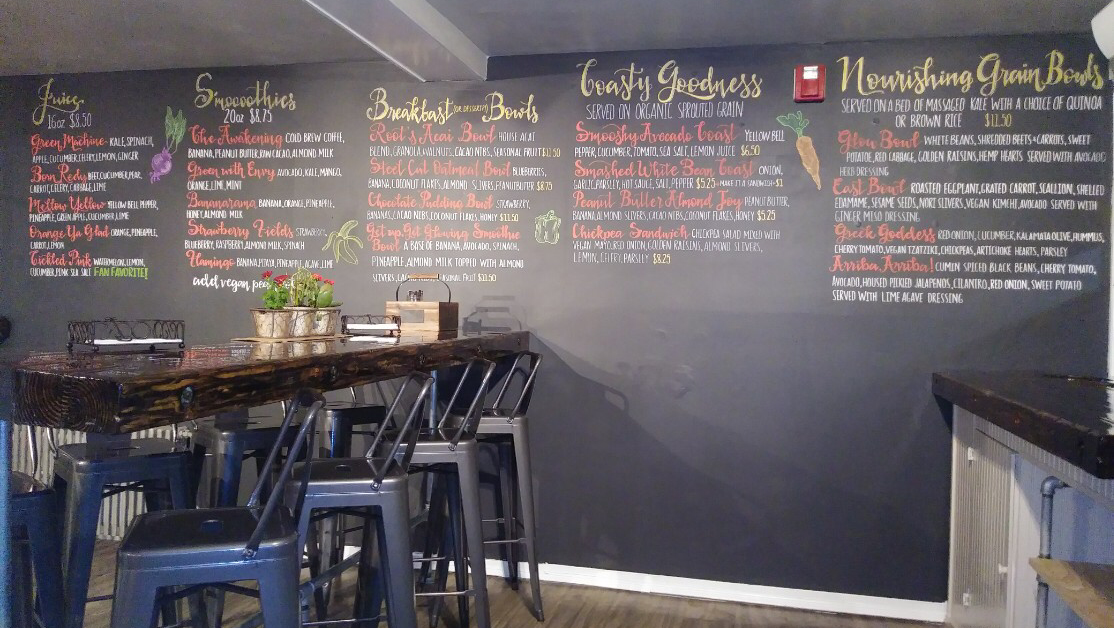 Juice
16oz $8.50
Green Machine - KALE, SPINACH,
APPLE, CUCUMBER, CELERY, LEMON, GINGER
Bon Redy BEET, CUCUMBER, PEAR,
CARROT, CELERY, CABBAGE, LIME
Mellow Yellow YELLOW BELL PEPPER,
PINEAPPLE, GREEN APPLE, CUCUMBER, LIME
Orange Ya Glad ORANGE, PINEAPPLE,
CARROT, LEMON
Tickled Pink WATERMELON, LEMON,
CUCUMBER, PINK SEA SALT FAN FAVORITE!
Smooothies
20oz $8.75
The Awakening COLD BREW COFFEE,
BANANA, PEANUT BUTTER, RAW CACAO, ALMOND MILK
Green with Envy AVOCADO, KALE, MANGO,
ORANGE, LIME, MINT
Bananarama BANANA, ORANGE, PINEAPPLE,
HONEY, ALMOND MILK
Strawberry Fields STRAWBERRY,
BLUEBERRY, RASPBERRY, ALMOND MILK, SPINACH
Flamingo BANANA, PITAYA, PINEAPPLE, AGAVE, LIME
add vegan
Breakfast (OR DESSERT) Bowls
Root's Acai Bowl HOUSE ACAI
BLEND, GRANOLA, WALNUTS, CACAO NIBS, SEASONAL FRUIT $11.50
Steel Cut Oatmeal Bowl BLUEBERRIES,
BANANA, COCONUT FLAKES, ALMOND SLIVERS, PEANUT BUTTER $8.75
Chocolate Pudding Bowl STRAWBERRY,
BANANAS, CACAO NIBS, COCONUT FLAKES, HONEY $11.50
Get up, Get Glowing Smoothie
Bowl A BASE OF BANANA, AVOCADO, SPINACH,
PINEAPPLE, ALMOND MILK TOPPED WITH ALMOND
SLIVERS, FRUIT $11.50
Toasty Goodness
SERVED ON ORGANIC SPROUTED GRAIN
Smooshy Avocado Toast YELLOW BELL
PEPPER, CUCUMBER, TOMATO, SEA SALT, LEMON JUICE $6.50
Smashed White Bean Toast ONION,
GARLIC, PARSLEY, HOT SAUCE, SALT, PEPPER $5.25 - MAKE IT A SANDWICH +$1
Peanut Butter Almond Joy PEANUT BUTTER,
BANANA, ALMOND SLIVERS, CACAO NIBS, COCONUT FLAKES, HONEY $5.25
Chickpea Sandwich - CHICKPEA SALAD MIXED WITH
VEGAN MAYO, RED ONION, GOLDEN RAISINS, ALMOND SLIVERS,
LEMON, CELERY, PARSLEY $8.25
Nourishing Grain Bowls
SERVED ON A BED OF MASSAGED KALE WITH A CHOICE OF QUINOA
OR BROWN RICE $11.50
Glow Bowl WHITE BEANS, SHREDDED BEETS + CARROTS, SWEET
POTATO, RED CABBAGE, GOLDEN RAISINS, HEMP HEARTS SERVED WITH AVOCADO
HERB DRESSING
East Bowl ROASTED EGGPLANT, GRATED CARROT, SCALLION, SHELLED
EDAMAME, SESAME SEEDS, NORI SLIVERS, VEGAN KIMCHI, AVOCADO SERVED WITH
GINGER MISO DRESSING
Greek Goddess RED ONION, CUCUMBER, KALAMATA OLIVE, HUMMUS,
CHERRY TOMATO, VEGAN TZATZIKI, CHICKPEAS, ARTICHOKE HEARTS, PARSLEY
Arriba, Arriba! CUMIN SPICED BLACK BEANS, CHERRY TOMATO,
AVOCADO, HOUSED PICKLED JALAPENOS, CILANTRO, RED ONION, SWEET POTATO
SERVED WITH LIME AGAVE DRESSING